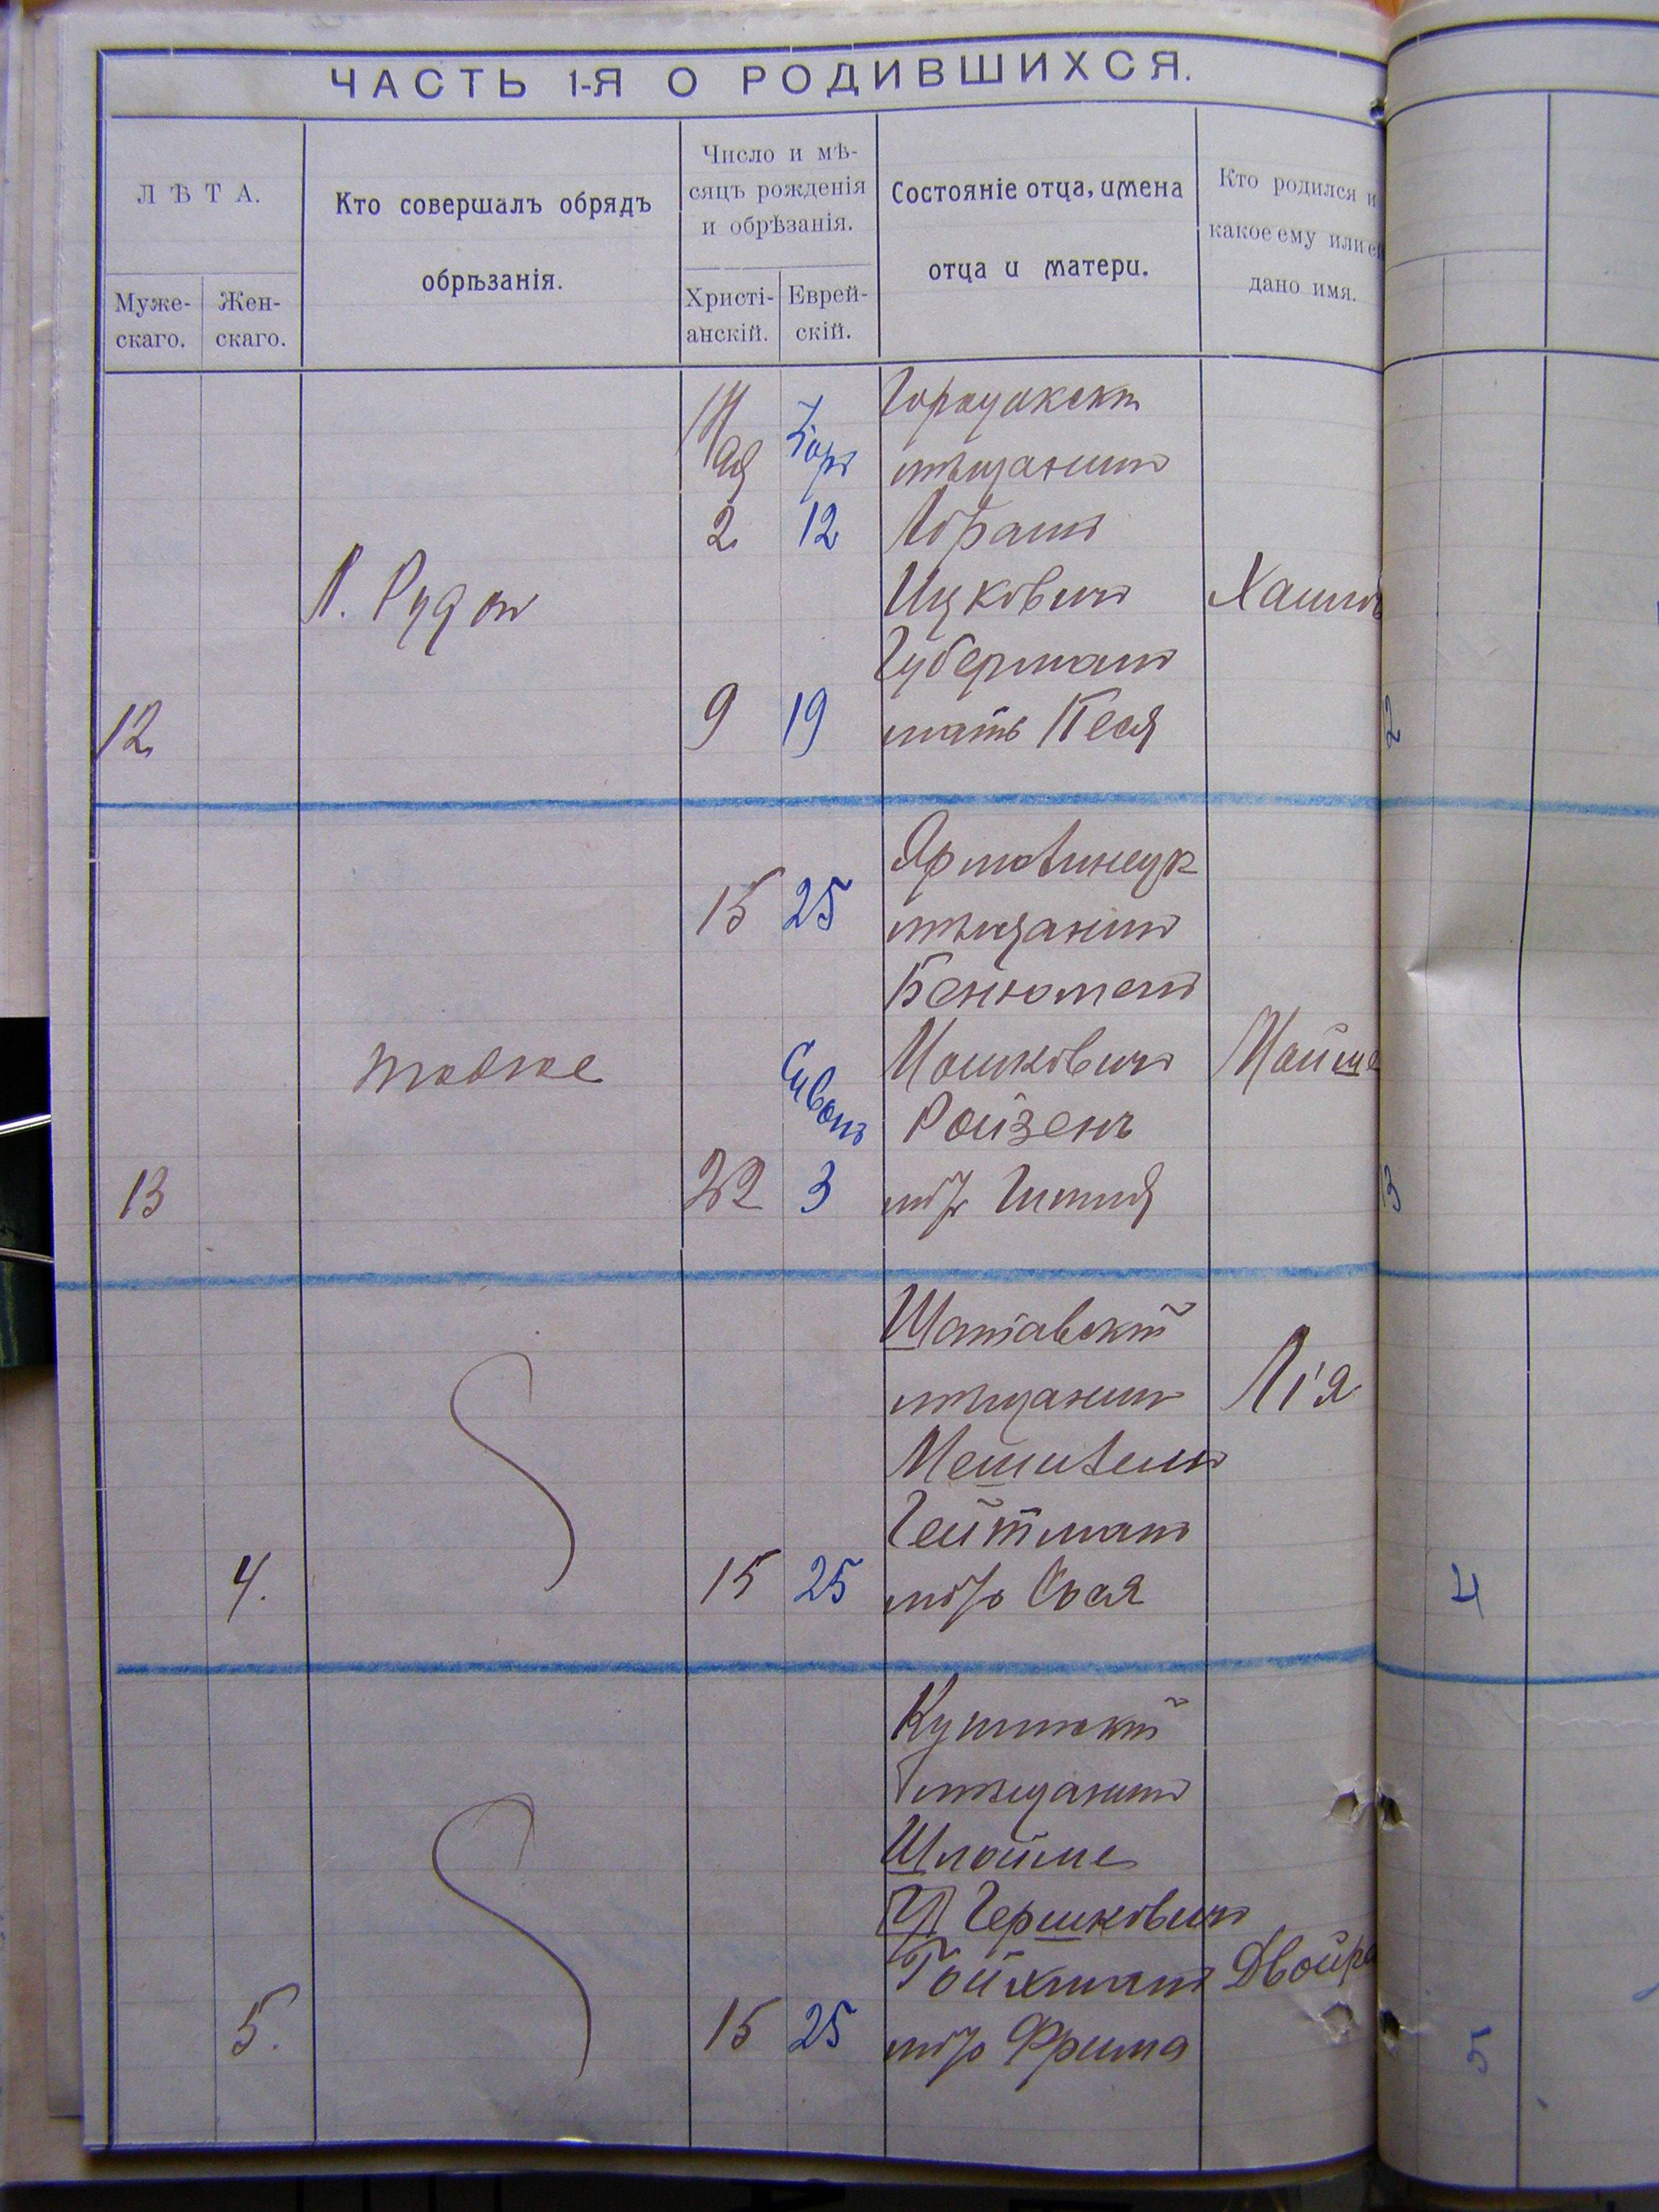 ЧАСТЬ 1-Я О РОДИВШИХСЯ.
ЛѢТА.
Муже-
скаго.
Жен-
скаго.
Кто совершалъ обрядъ
обрѣзанія.
Число и мѣ-
сяцъ рожденія
и обрѣзанія.
Христі-
анскій.
Еврей-
скій.
Состояніе отца, имена
отца и матери.
Кто родился и
какое ему или е
дано имя.
12
Л. Рудой
Мая
2
9
Iоръ
12
19
мѣщанинъ
Абрамъ
Ицковичъ
Губерманъ
мать Песя
Хаимъ
2
13
тоже
15
22
25
Сивонъ
3
Ярмолинецк
мѣщанинъ
Бенюменъ
Мошковичъ
Ройзенъ
м/ръ Гитля
Мойше
3
4.
15
25
Шатавскій
мѣщанинъ
Мешилемъ
Гейтманъ
м/ръ Сося
Лія
4
5.
15
25
Купинскій
мѣщанинъ
Шлойме
Гершковичъ
Тойхманъ
м/ръ Фрима
Двойра
5